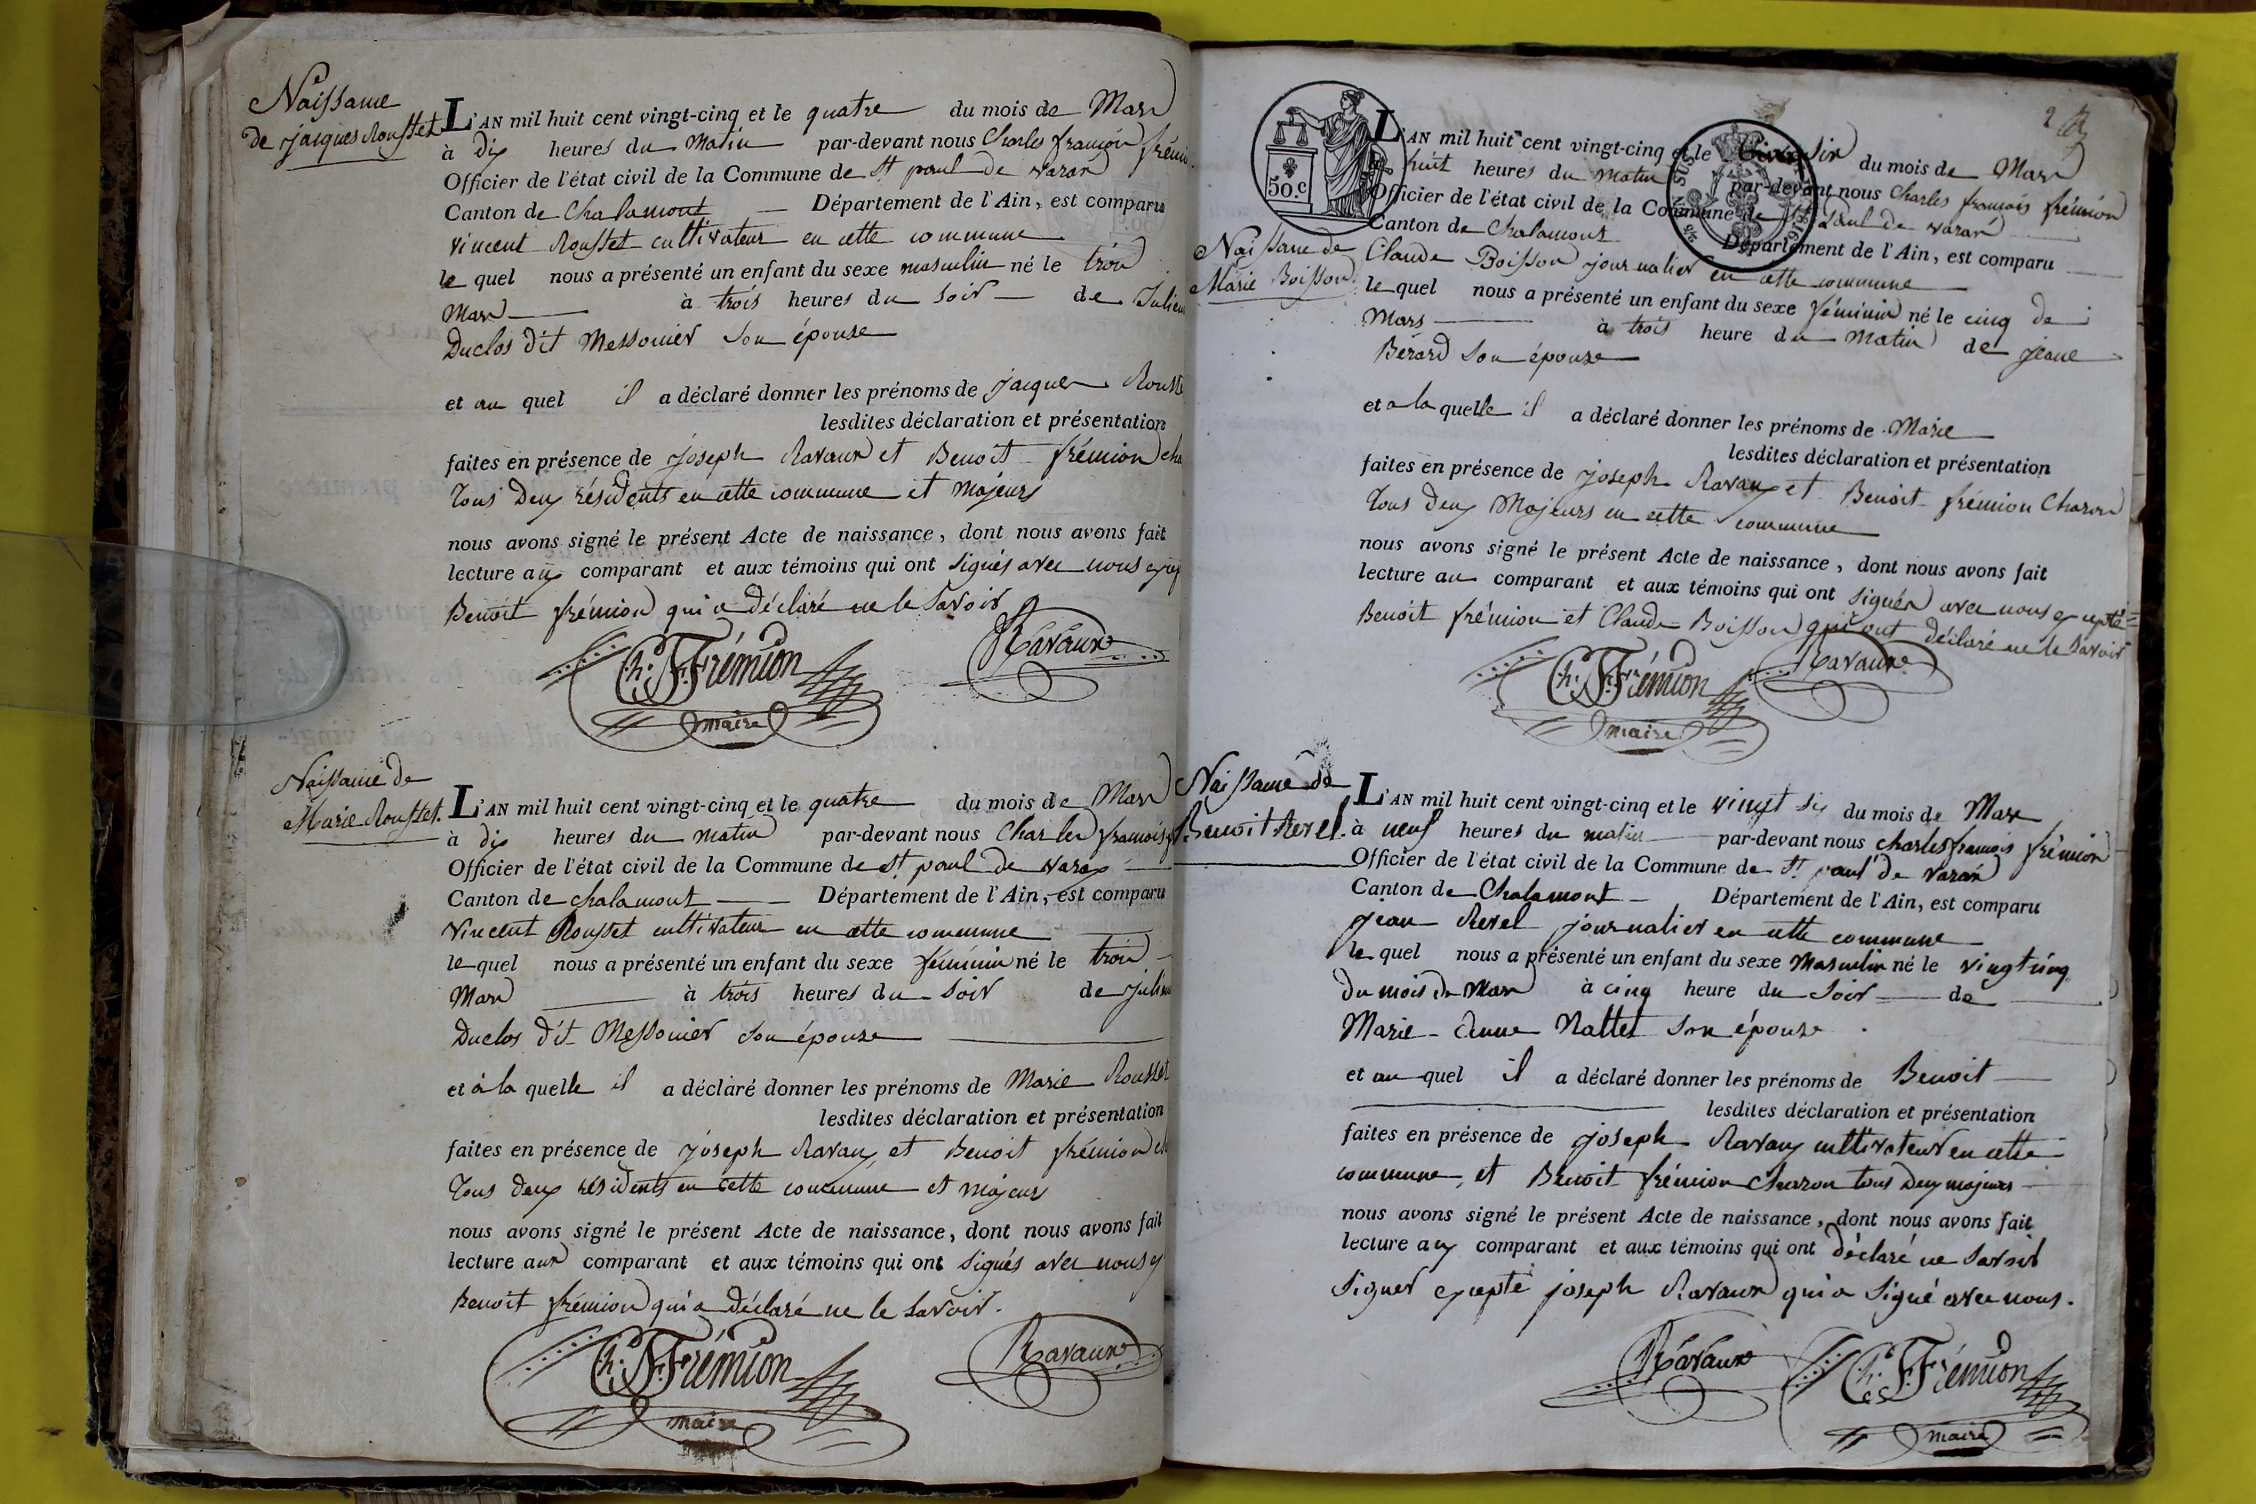 Naissance
de jacques Rousset
L'AN mil huit cent vingt-cinq et le quatre du mois de Mars
à dix heures du matin par-devant nous Charles françois frémion
Officier de l'état civil de la Commune de St paul de varax
Canton de Chalamont Département de l'Ain, est comparu
vincent Rousset cultivateur en cette commune
le quel nous a présenté un enfant du sexe masculin né le trois
Mars à trois heures du soir de Julienne
Duclos dit Messonier son épouse
et au quel il a déclaré donner les prénoms de jacques Rousset
lesdites déclaration et présentation
faites en présence de joseph Ravaux et Benoit frémion
Tous deux résidents en cette commune et majeurs
nous avons signé le présent Acte de naissance, dont nous avons fait
lecture aux comparant et aux témoins qui ont signés avec nous
Benoit frémion qui a déclaré ne le savoir
Ch. F. Frémion
maire
Ravaux
Naissance de
Marie Rousset.
L'AN mil huit cent vingt-cinq et le quatre du mois de Mars
à dix heures du matin par-devant nous Charles françois
Officier de l'état civil de la Commune de St paul de varax
Canton de chalamont Département de l'Ain, est comparu
Vincent Rousset cultivateur en cette commune
le quel nous a présenté un enfant du sexe féminin né le trois
Mars à trois heures du soir de Julienne
Duclos dit Messonier son épouse
et à la quelle il a déclaré donner les prénoms de Marie Rousset
lesdites déclaration et présentation
faites en présence de joseph Ravaux et Benoit frémion
Tous deux résidents en cette commune et majeurs
nous avons signé le présent Acte de naissance, dont nous avons fait
lecture aux comparant et aux témoins qui ont signés avec nous
Benoit frémion qui a déclaré ne le savoir.
Ch. F. Frémion
maire
Ravaux
2
50.c
Naissance de
Marie Boisson
L'AN mil huit cent vingt-cinq et le six du mois de Mars
à huit heures du matin par-devant nous Charles francois frémion
Officier de l'état civil de la Commune de St Paul de varax
Canton de Chalamont Département de l'Ain, est comparu
Claude Boisson journalier en cette commune
le quel nous a présenté un enfant du sexe féminin né le cinq de
Mars à trois heure du matin de jeane
Bérard son épouse
et a la quelle il a déclaré donner les prénoms de Marie
lesdites déclaration et présentation
faites en présence de joseph Ravaux et Benoit frémion Charon
Tous deux Majeurs en cette commune
nous avons signé le présent Acte de naissance, dont nous avons fait
lecture au comparant et aux témoins qui ont signés avec nous excepté
Benoit frémion et Claude Boisson qui ont déclaré ne le savoir
Ch. F. Frémion
maire
Ravaux
Naissance de
Benoit Revel.
L'AN mil huit cent vingt-cinq et le vingt six du mois de Mars
à neuf heures du matin par-devant nous charles francois frémion
Officier de l'état civil de la Commune de St paul de varax
Canton de Chalamont Département de l'Ain, est comparu
jean Revel journalier en cette commune
le quel nous a présenté un enfant du sexe Masculin né le vingt cinq
du mois de Mars à cinq heure du soir de
Marie-Anne Nallet son épouse
et au quel il a déclaré donner les prénoms de Benoit
lesdites déclaration et présentation
faites en présence de joseph Ravaux cultivateur en cette
commune et Benoit frémion Charon tous deux majeurs
nous avons signé le présent Acte de naissance, dont nous avons fait
lecture aux comparant et aux témoins qui ont déclaré ne savoir
signer excepté joseph Ravaux qui a signé avec nous.
Ravaux
Ch. F. Frémion
maire